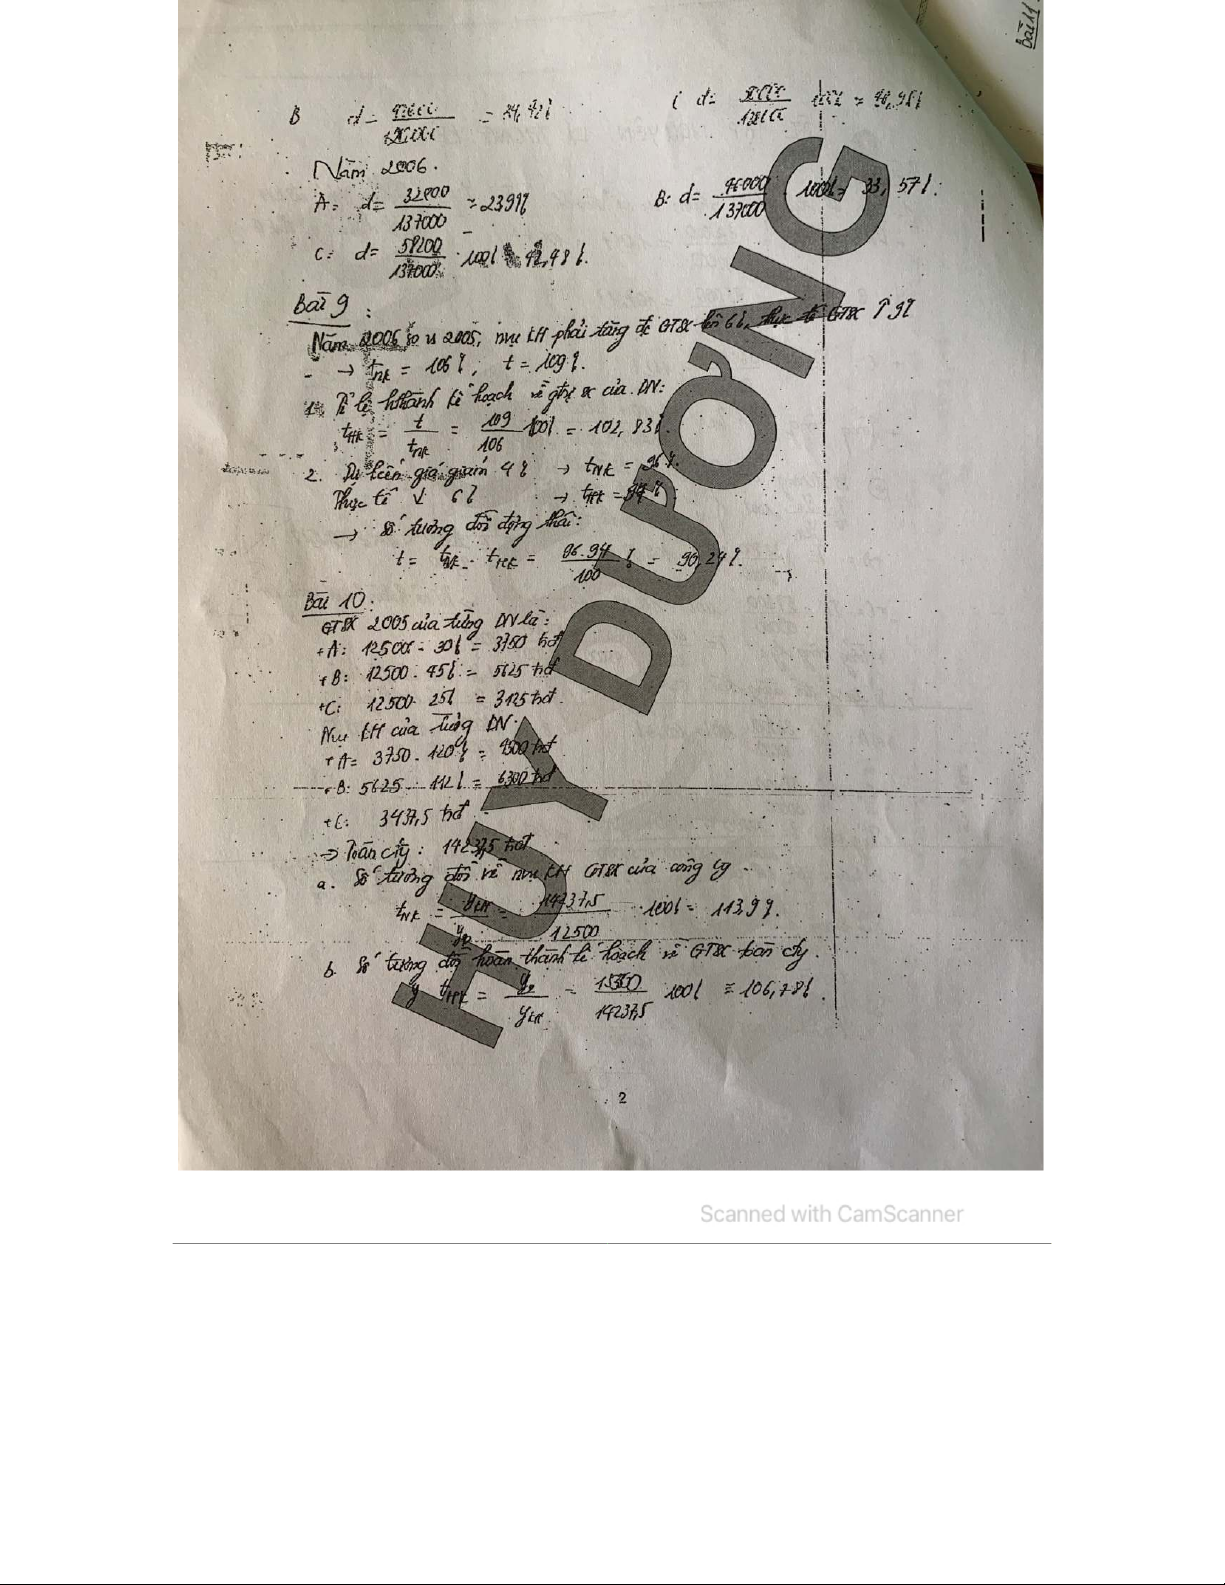 Bài 11
B d = = 24,42%
C d = = 40,98%
Năm 2006.
A: d = 32800/137000 ≈ 23,9% B: d = 46000/137000 · 100% = 33,57%
C: d = 58200/137000 · 100% = 42,48%.
Bài 9:
Năm 2006 so vs 2005, nvu KH phải tăng để GTSX lên 6%, thực tế GTSX ↑ 9%
→ tNK = 106%, t = 109%.
1. Tỉ lệ hthành kế hoạch về gtrị sx của DN:
tHK = t/tNK = 109/106 · 100% = 102,83%.
2. Dự kiến giá giảm 4% → tNK = 96%.
Thực tế ↓ 6% → tHK = 94%
→ Số tương đối động thái:
t = tNK · tHK = 96.94/100 % = 90,24%.
Bài 10:
GTSX 2005 của từng DN là:
+A: 12500 · 30% = 3750 trđ
+B: 12500 · 45% = 5625 trđ
+C: 12500 · 25% = 3125 trđ.
Nvu KH của từng DN:
+A = 3750 . 120% = 4500 trđ
+B: 5625 · 112% = 6300 trđ
+C: 3437,5 trđ
⇒ Toàn cty: 14237,5 trđ
a. Số tương đối về nvu KH GTSX của công ty
tNK = yKH/y0 = 14237,5/12500 · 100% = 113,9%.
b. Số tương đối hoàn thành kế hoạch về GTSX toàn cty.
tHK = / yKH = /14237,5 100% ≈ 106,78%.
HUY DƯƠNG
2
Scanned with CamScanner